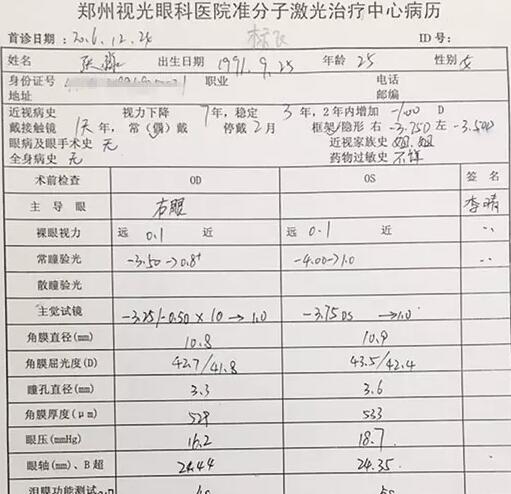 郑州视光眼科医院准分子激光治疗中心病历
首诊日期：2016.12.24 ID号：
姓名 张 出生日期 1991.9.25 年龄 25 性别 女
身份证号 职业 电话
地址 邮编
近视病史 视力下降 7年，稳定 3年，2年内增加 -1.00 D
戴接触镜 1天年，常（偶）戴 停戴2月 框架/隐形 右 -3.75D 左 -3.50D
眼病及眼手术史 无 近视家族史 姐,姐
全身病史 无 药物过敏史 不详
术前检查 OD OS 签名
主导眼 右眼 李晴
裸眼视力 远 0.1 近 远 0.1 近
常瞳验光 -3.50→0.8⁺ -4.00→1.0
散瞳验光
主觉试镜 -3.25/-0.50×10→1.0 -3.75DS→1.0
角膜直径(mm) 10.8 10.9
角膜屈光度(D) 42.7/41.8 43.5/42.4
瞳孔直径(mm) 3.3 3.6
角膜厚度(μm) 529 533
眼压(mmHg) 16.2 18.7
眼轴(mm)、B超 24.44 24.35
泪膜功能测试